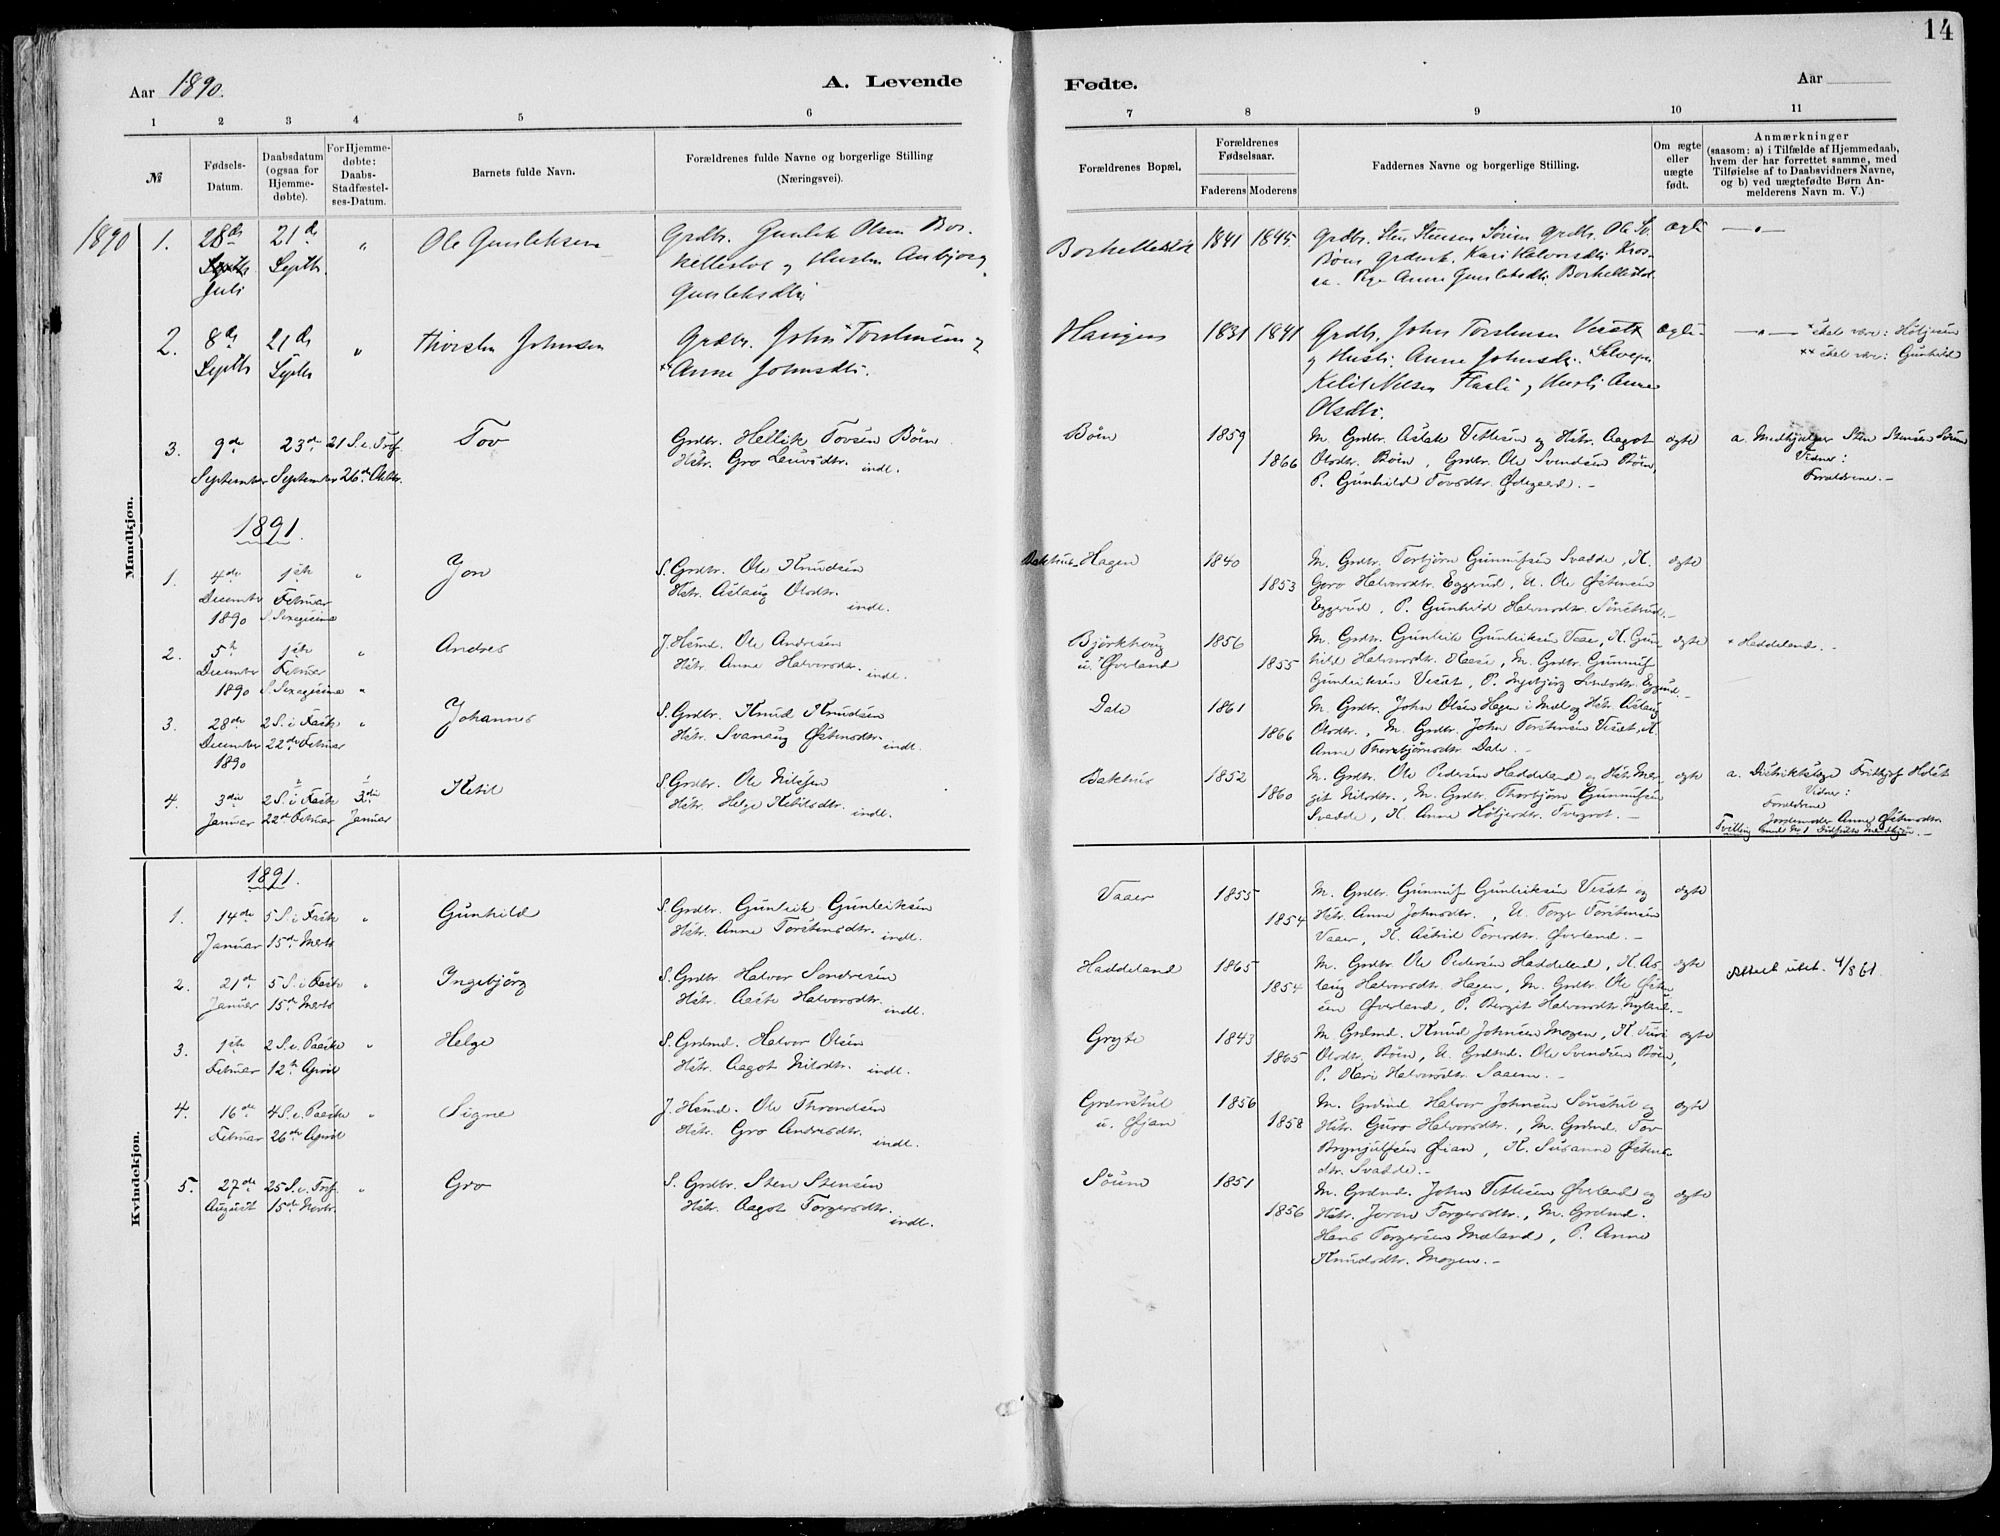 14
Aar 1890.
A. Levende
Fødte.
Aar
1 2 3 4 5 6 7 8 9 10 11
№
Fødsels-
Datum.
Daabsdatum
(ogsaa for
Hjemme-
døbte).
For Hjemme-
døbte:
Daabs-
Stadfæstel-
ses-Datum.
Barnets fulde Navn.
Forældrenes fulde Navne og borgerlige Stilling
(Næringsvei).
Forældrenes Bopæl.
Forældrenes
Fødselsaar.
Faderens Moderens
Faddernes Navne og borgerlige Stilling.
Om ægte
eller
uægte
født.
Anmærkninger
(saasom: a) i Tilfælde af Hjemmedaab,
hvem der har forrettet samme, med
Tilføielse af to Daabsvidners Navne,
og b) ved uægtefødte Børn An-
melderens Navn m. V.)
Mandkjøn.
1890
1. 28de Septbr Juli
21de Septbr
"
Ole Gunleksen
Grdbr. Gunlek Olsen Bor-
kellestol og Hustru Anbjorg
Gunleksdtr
1841 1845
Grdbr. Sten Stensen Sørum Grdbr. Ole Sv.
Anne Gunleksdtr.
2. 8de Septbr
21de Septbr
"
Thorsten Johnsen
Grdbr. John × Torstensen og
×× Anne Johnsdtr.
Haugen
1831 1841
Grdbr. John Torstensen Vesæt
og Hustr. Anne Johnsdtr.
Olsdtr.
× skal være: Höljesen
×× skal være: Gunhild
3. 9de September
23de September
21 S. e. Tref. 26de Oktbr.
Tov
Grdbr. Hellik Tovsen Böen
Hstr. Gro Leivsdtr. indl.
Böen
1859
1866
M. Grdbr. Aslak Vetlesen og Hstr. Aagot
Olsdtr. Böen, Grdbr. Ole Svendsen Böen,
P. Gunhild Tovsdtr. Ødegaard. -
ægte
a. Medhjælper Sten Stensen Sörum
Vidner:
Forældrene. -
1891.
1. 4de December 1890
1ste Februar S. Sexagesima
"
Jon
S. Grdbr. Ole Knudsen
Hstr. Aslaug Olsdtr. indl.
Bakhus-Hagen
1840
1853
M. Grdbr. Torbjörn Gunnufsen Svadde, K.
Goro Halvorsdtr. Eggerud, U. Ole Østensen
Eggerud, P. Gunhild Halvorsdtr. Sönstrud. -
ægte
2. 5te December 1890
1ste Februar S. Sexagesima
"
Andres
J. Hsmd. Ole Andresen
Hstr. Anne Halvorsdtr. indl.
Björkhaug
u. × Øverland
1856
1855
M. Grdbr. Gunleik Gunleiksen Vaaer, K. Gun-
hild Halvorsdtr. Kaasi, M. Grdbr. Gunnuf
Gunleiksen Vesæt, P. Ingebjörg Svendsdtr. Eggerud. -
ægte
× Haddeland. -
3. 28de December 1890
2 S. i Faste 22de Februar
"
Johannes
S. Grdbr. Knud Knudsen
Hstr. Svanaug Østensdtr. indl.
Dale
1861
1866
M. Grdbr. John Olsen Hagen i Mæl og Hstr. Aslaug
Olsdtr., M. Grdbr. John Torstensen Vesæt, K.
Anne Thorbjörnsdtr. Dale. -
4. 3die Januar
2 S. i Faste 22de Februar
3die Januar
Ketil
S. Grdbr. Ole Nilssen
Hstr. Helge Ketilsdtr. indl.
Bakhus
1852
1860
M. Grdbr. Ole Pedersen Haddeland og Hstr. Mar-
git Nilsdtr., M. Grdbr. Thorbjörn Gunnufsen
Svadde, K. Anne Höljesdtr. Tvergrot. -
ægte
a. Distriktslæge Frithjof Holst
Vidner:
Forældrene
Jordemoder Anne Østensdtr.
Tvilling med No 1 Dödfödte Mandkjön. -
Kvindekjøn.
1891.
1. 14de Januar
5 S. i Faste 15de Marts
"
Gunhild
S. Grdbr. Gunleik Gunleiksen
Hstr. Anne Torstensdtr. indl.
Vaaer
1855
1854
M. Grdbr. Gunnuf Gunleiksen Vesæt og
Hstr. Anne Johnsdtr., U. Torger Torstensen
Vaaer, K. Astrid Toresdtr. Øverland. -
ægte
2. 21de Januar
5 S. i Faste 15de Marts
"
Ingebjörg
S. Grdbr. Halvor Sondresen
Hstr. Aaste Halvorsdtr. indl.
Haddeland
1865
1854
M. Grdbr. Ole Pedersen Haddeland, K. As-
laug Halvorsdtr. Hagen, M. Grdbr. Ole Østen-
sen Øverland, P. Bergit Halvorsdtr. Nyland. -
ægte
Attest utst. 4/8 61.
3. 1ste Februar
2 S. e. Paaske 12te April
"
Helge
S. Grdmd. Halvor Olsen
Hstr. Aagot Nilsdtr. indl.
Gryte
1843
1865
M. Grdmd. Knud Johnsen Mogen, K. Turi
Olsdtr. Böen, U. Grdmd. Ole Svendsen Böen,
P. Kari Halvorsdtr. Saaem. -
ægte
4. 16de Februar
4 S. e. Paaske 26de April
"
Signe
J. Hsmd. Ole Throndsen
Hstr. Gro Andresdtr. indl.
u. Øjan
1856
1858
M. Grdmd. Halvor Johnsen Sönstul og
Hstr. Guro Halvorsdtr., M. Grdmd. Tov
Brynjulfsen Øian, K. Susanne Østens-
dtr. Svadde. -
ægte
5. 27de August
25 S. e. Tref. 15de Novbr.
"
Gro
S. Grdbr. Sten Stensen
Hstr. Aagot Torgersdtr. indl.
Söum
1851
1856
M. Grdmd. John Vetlesen Øverland og
Hstr. Joron Torgersdtr., M. Grdmd.
Hans Torgersen Mæland, P. Anne
Knudsdtr. Mogen. -
ægte